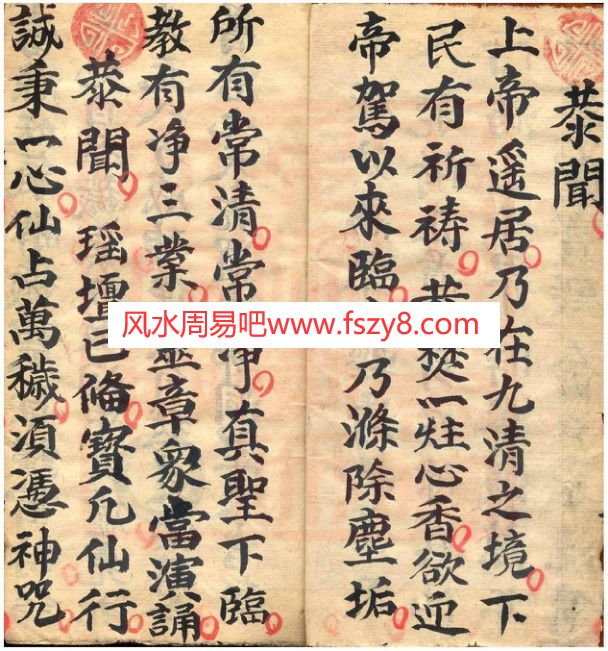 恭聞
上帝遥居乃在九清之境下
民有祈禱恭焚一炷心香欲迎
帝駕以來臨乃滌除塵垢
所有常清常净真聖下臨
教有净三業靈章衆當演誦
恭聞 瑶壇已俻寳几仙行
誠秉一心仙占萬穢須憑神咒
风水周易吧www.fszy8.com